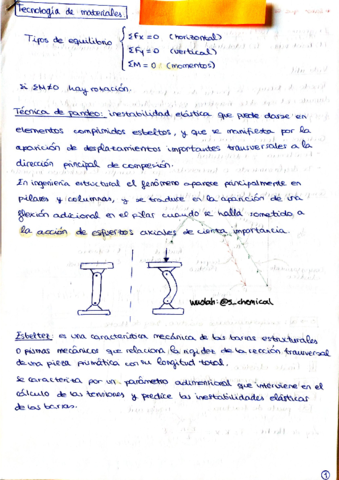 Tecnología de materiales.
Tipos de equilibrio { ΣFx = 0 (horizontal)
ΣFy = 0 (vertical)
ΣM = 0 (momentos)
Si ΣM≠0 hay rotación.
Técnica de pandeo: inestabilidad elástica que puede darse en
elementos comprimidos esbeltos, y que se manifiesta por la
aparición de desplazamientos importantes transversales a la
dirección principal de compresión.
En ingeniería estructural el fenómeno aparece principalmente en
pilares y columnas, y se traduce en la aparición de una
flexión adicional en el pilar cuando se halla sometido a
la acción de esfuertos axiales de cierta importancia.
wuolah: @s_chemical
Esbeltez: es una característica mecánica de las barras estructurales
o prismas mecánicos que relaciona la rigidez de la sección transversal
de una pieza prismática con su longitud total.
Se caracteriza por un parámetro adimensional que interviene en el
cálculo de las tensiones y predice las inestabilidades elásticas
de las barras.
1